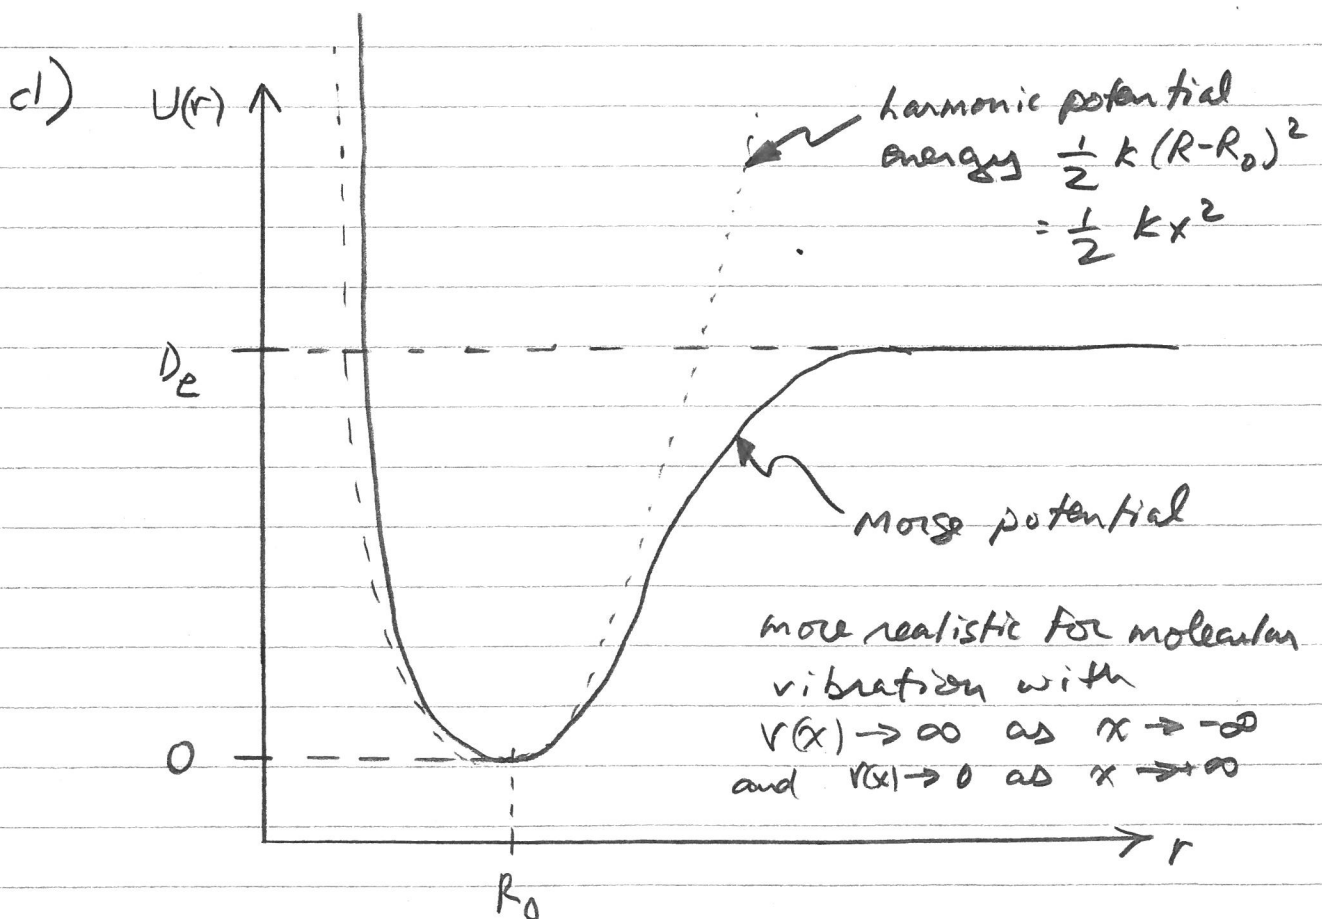 d)
U(r)
harmonic potential
energy 1/2 k (R-R₀)²
= 1/2 kx²
De
Morse potential
more realistic for molecular
vibration with
V(x) → ∞ as x → -∞
and V(x) → 0 as x → +∞
0
r
R₀